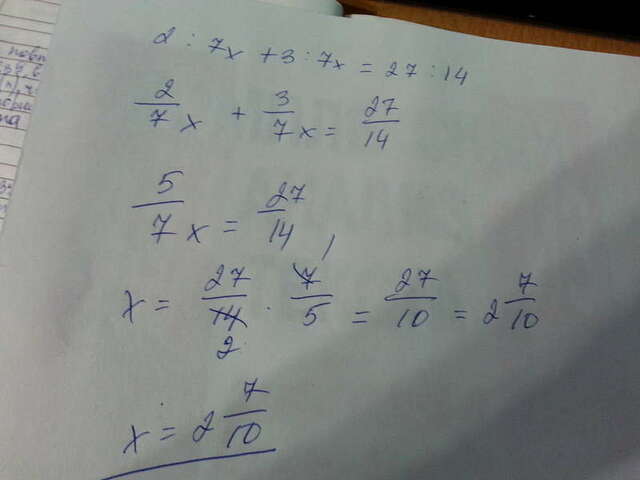 2 : 7x + 3 : 7x = 27 : 14
2/7 x + 3/7 x = 27/14
5/7 x = 27/14
x = 27/14 · 7/5 = 27/10 = 2 7/10
1
2
x = 2 7/10